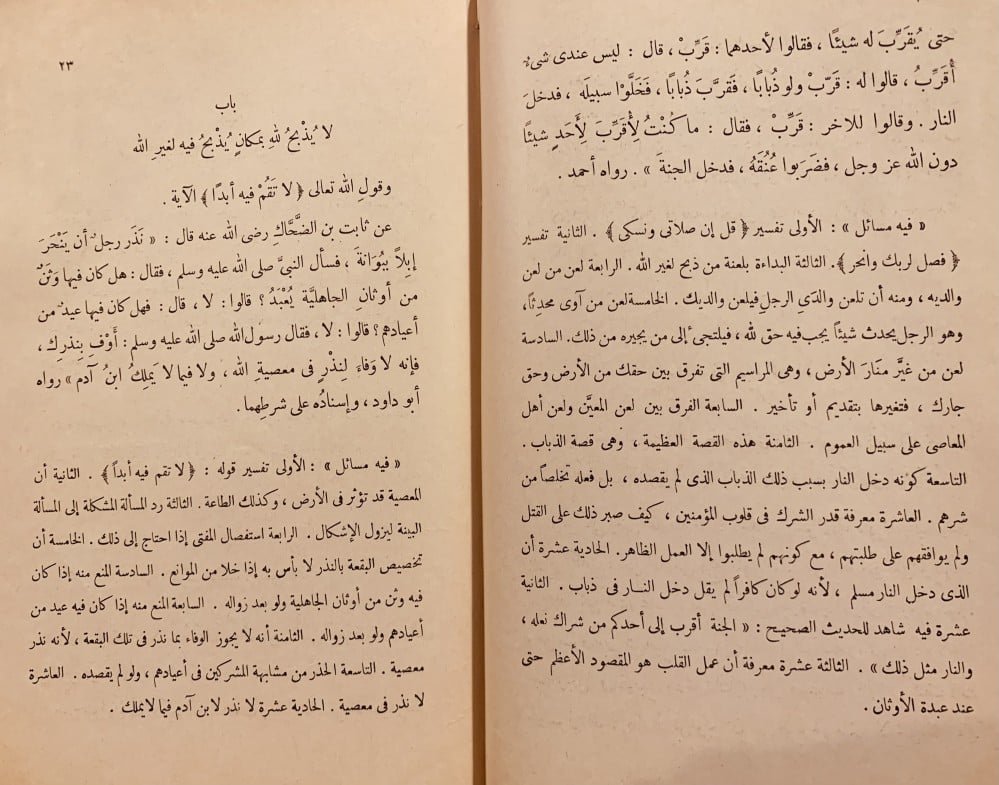 حتى يُقَرِّبَ له شيئًا ، فقالوا لأحدهما : قَرِّبْ ، قال : ليس عندى شىءٌ
أُقَرِّبُ ، قالوا له : قَرِّبْ ولو ذُبابًا ، فَقَرَّبَ ذُبابًا ، فَخَلَّوْا سبيلَه ، فدخلَ
النار . وقالوا للآخر : قَرِّبْ ، فقال : ما كُنْتُ لِأُقَرِّبَ لِأَحَدٍ شيئًا
دون الله عز وجل ، فضَرَبوا عُنُقَهُ ، فدخل الجنةَ » . رواه أحمد .
« فيه مسائل » : الأولى تفسير ﴿ قل إن صلاتى ونسكى ﴾ . الثانية تفسير
﴿ فصل لربك وانحر ﴾. الثالثة البداءة بلعنة من ذبح لغير الله . الرابعة لعن من لعن
والديه ، ومنه أن تلعن والدَيِ الرجلِ فيلعن والديك . الخامسة لعن من آوى محدِثًا ،
وهو الرجل يحدث شيئًا يجب فيه حق لله ، فيلتجئ إلى من يجيره من ذلك. السادسة
لعن من غَيَّر مَنَارَ الأرض ، وهى المراسيم التى تفرق بين حقك من الأرض وحق
جارك ، فتغيرها بتقديم أو تأخير . السابعة الفرق بين لعن المعيَّن ولعن أهل
المعاصى على سبيل العموم . الثامنة هذه القصة العظيمة ، وهى قصة الذباب .
التاسعة كونه دخل النار بسبب ذلك الذباب الذى لم يقصده ، بل فعله تخلصاً من
شرهم . العاشرة معرفة قدر الشرك فى قلوب المؤمنين ، كيف صبر ذلك على القتل
ولم يوافقهم على طلبتهم ، مع كونهم لم يطلبوا إلا العمل الظاهر. الحادية عشرة أن
الذى دخل النار مسلم ، لأنه لو كان كافراً لم يقل دخل النـار فى ذباب . الثانية
عشرة فيه شاهد للحديث الصحيح : « الجنة أقرب إلى أحدكم من شراك نعله ،
والنار مثل ذلك » . الثالثة عشرة معرفة أن عمل القلب هو المقصود الأعظم حتى
عند عبدة الأوثان .
٢٣
باب
لا يُذْبحُ للهِ بمكانٍ يُذْبحُ فيه لغيرِ الله
وقولِ الله تعالى ﴿ لا تَقُمْ فيه أبدًا ﴾ الآية .
عن ثابت بن الضَّحَّاكِ رضى الله عنه قال : « نَذَر رجلٌ أن يَنْحَرَ
إبِلاً بِبُوَانةَ ، فسأل النبيَّ صلى الله عليه وسلم ، فقال : هل كان فيها وَثَنٌ
من أوثانِ الجاهليَّةِ يُعْبَدُ ؟ قالوا : لا ، قال : فهل كان فيها عيدٌ من
أعيادِهم ؟ قالوا : لا ، فقال رسول الله صلى الله عليه وسلم : أَوْفِ بِنذرِك ،
فإنه لا وَفاءَ لِنذْرٍ فى معصيةِ الله ، ولا فيما لا يَملِكُ ابنُ آدم » رواه
أبو داود ، وإسنادُه على شرطِهما .
« فيه مسائل » : الأولى تفسير قوله : ﴿ لا تقم فيه أبداً ﴾ . الثانية أن
المعصية قد تؤثر فى الأرض ، وكذلك الطاعة . الثالثة رد المسألة المشكلة إلى المسألة
البينة ليزول الإشكال . الرابعة استفصال المفتى إذا احتاج إلى ذلك . الخامسة أن
تخصيص البقعة بالنذر لا بأس به إذا خلا من الموانع . السادسة المنع منه إذا كان
فيه وثن من أوثان الجاهلية ولو بعد زواله . السابعة المنع منه إذا كان فيه عيد من
أعيادهم ولو بعد زواله . الثامنة أنه لا يجوز الوفاء بما نذر فى تلك البقعة ، لأنه نذر
معصية . التاسعة الحذر من مشابهة المشركين فى أعيادهم ، ولو لم يقصده . العاشرة
لا نذر فى معصية . الحادية عشرة لا نذر لابن آدم فيما لا يملك .